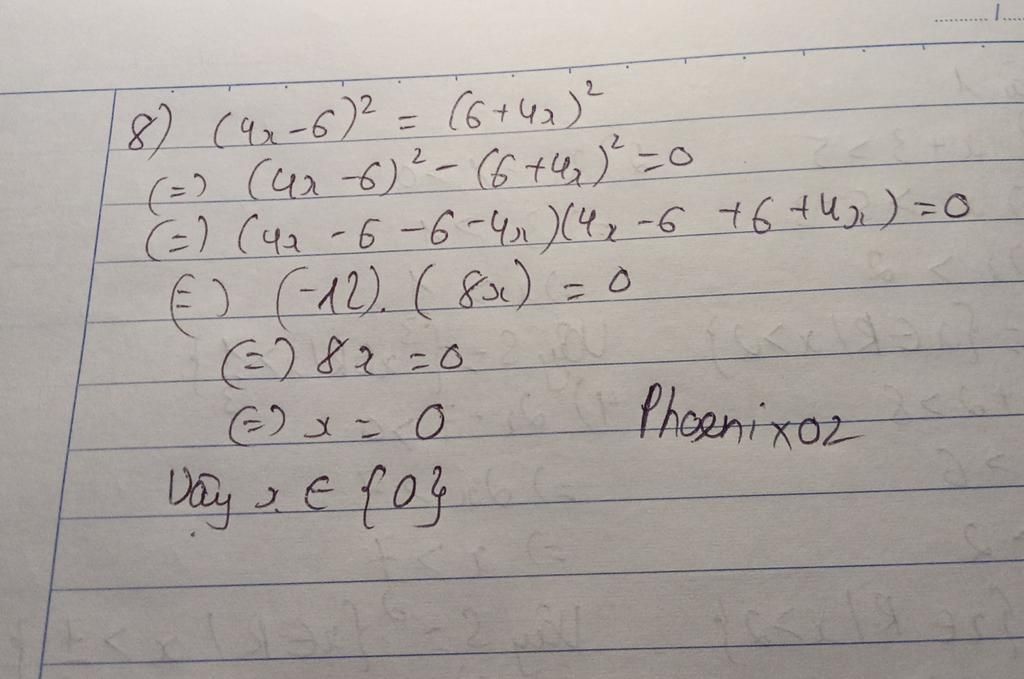 8) (4x-6)² = (6+4x)²
(=) (4x-6)² - (6+4x)² = 0
(=) (4x - 6 - 6 - 4x)(4x - 6 + 6 + 4x) = 0
(=) (-12). (8x) = 0
(=) 8x = 0
(=) x = 0
Phoenix02
Vậy x ∈ {0}